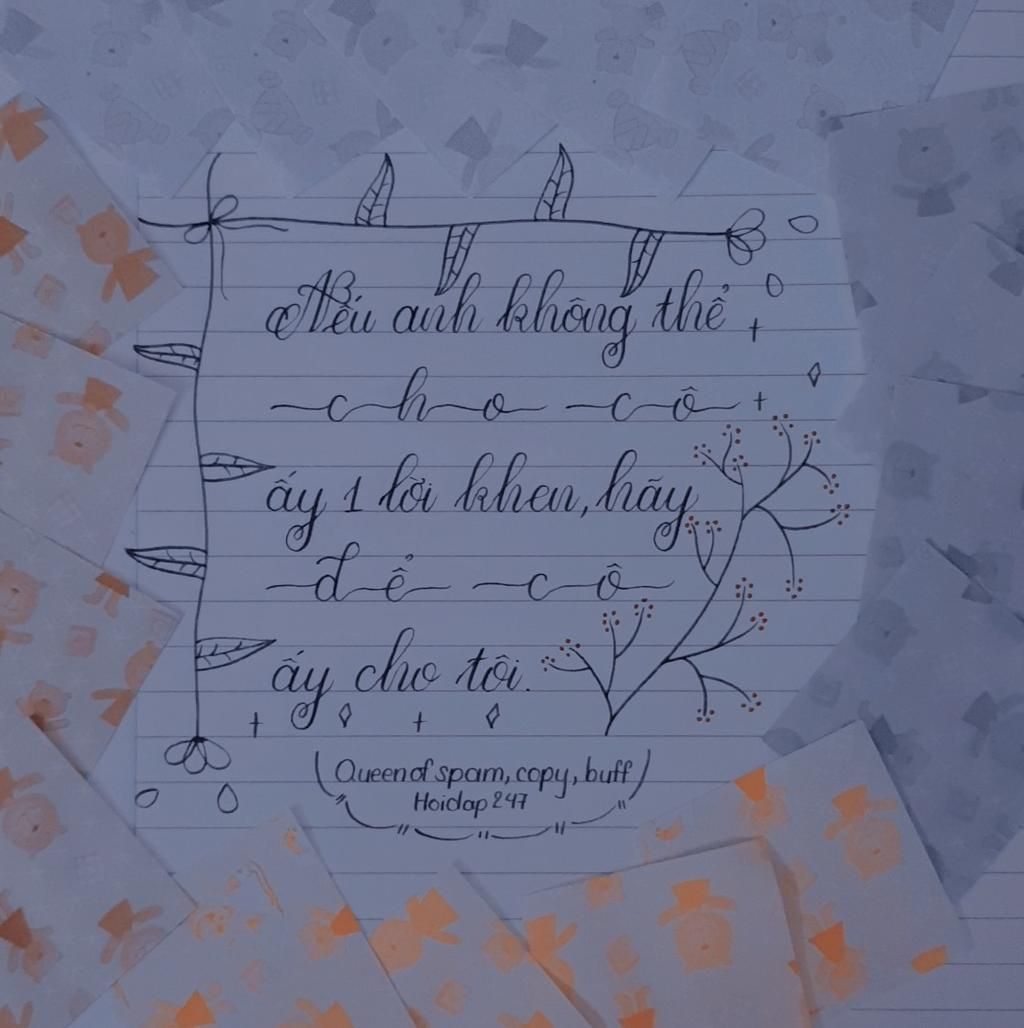 Nếu anh không thể
cho cô
ấy 1 lời khen, hãy
để cô
ấy cho tôi.
(Queen of spam, copy, buff)
Hoidap247